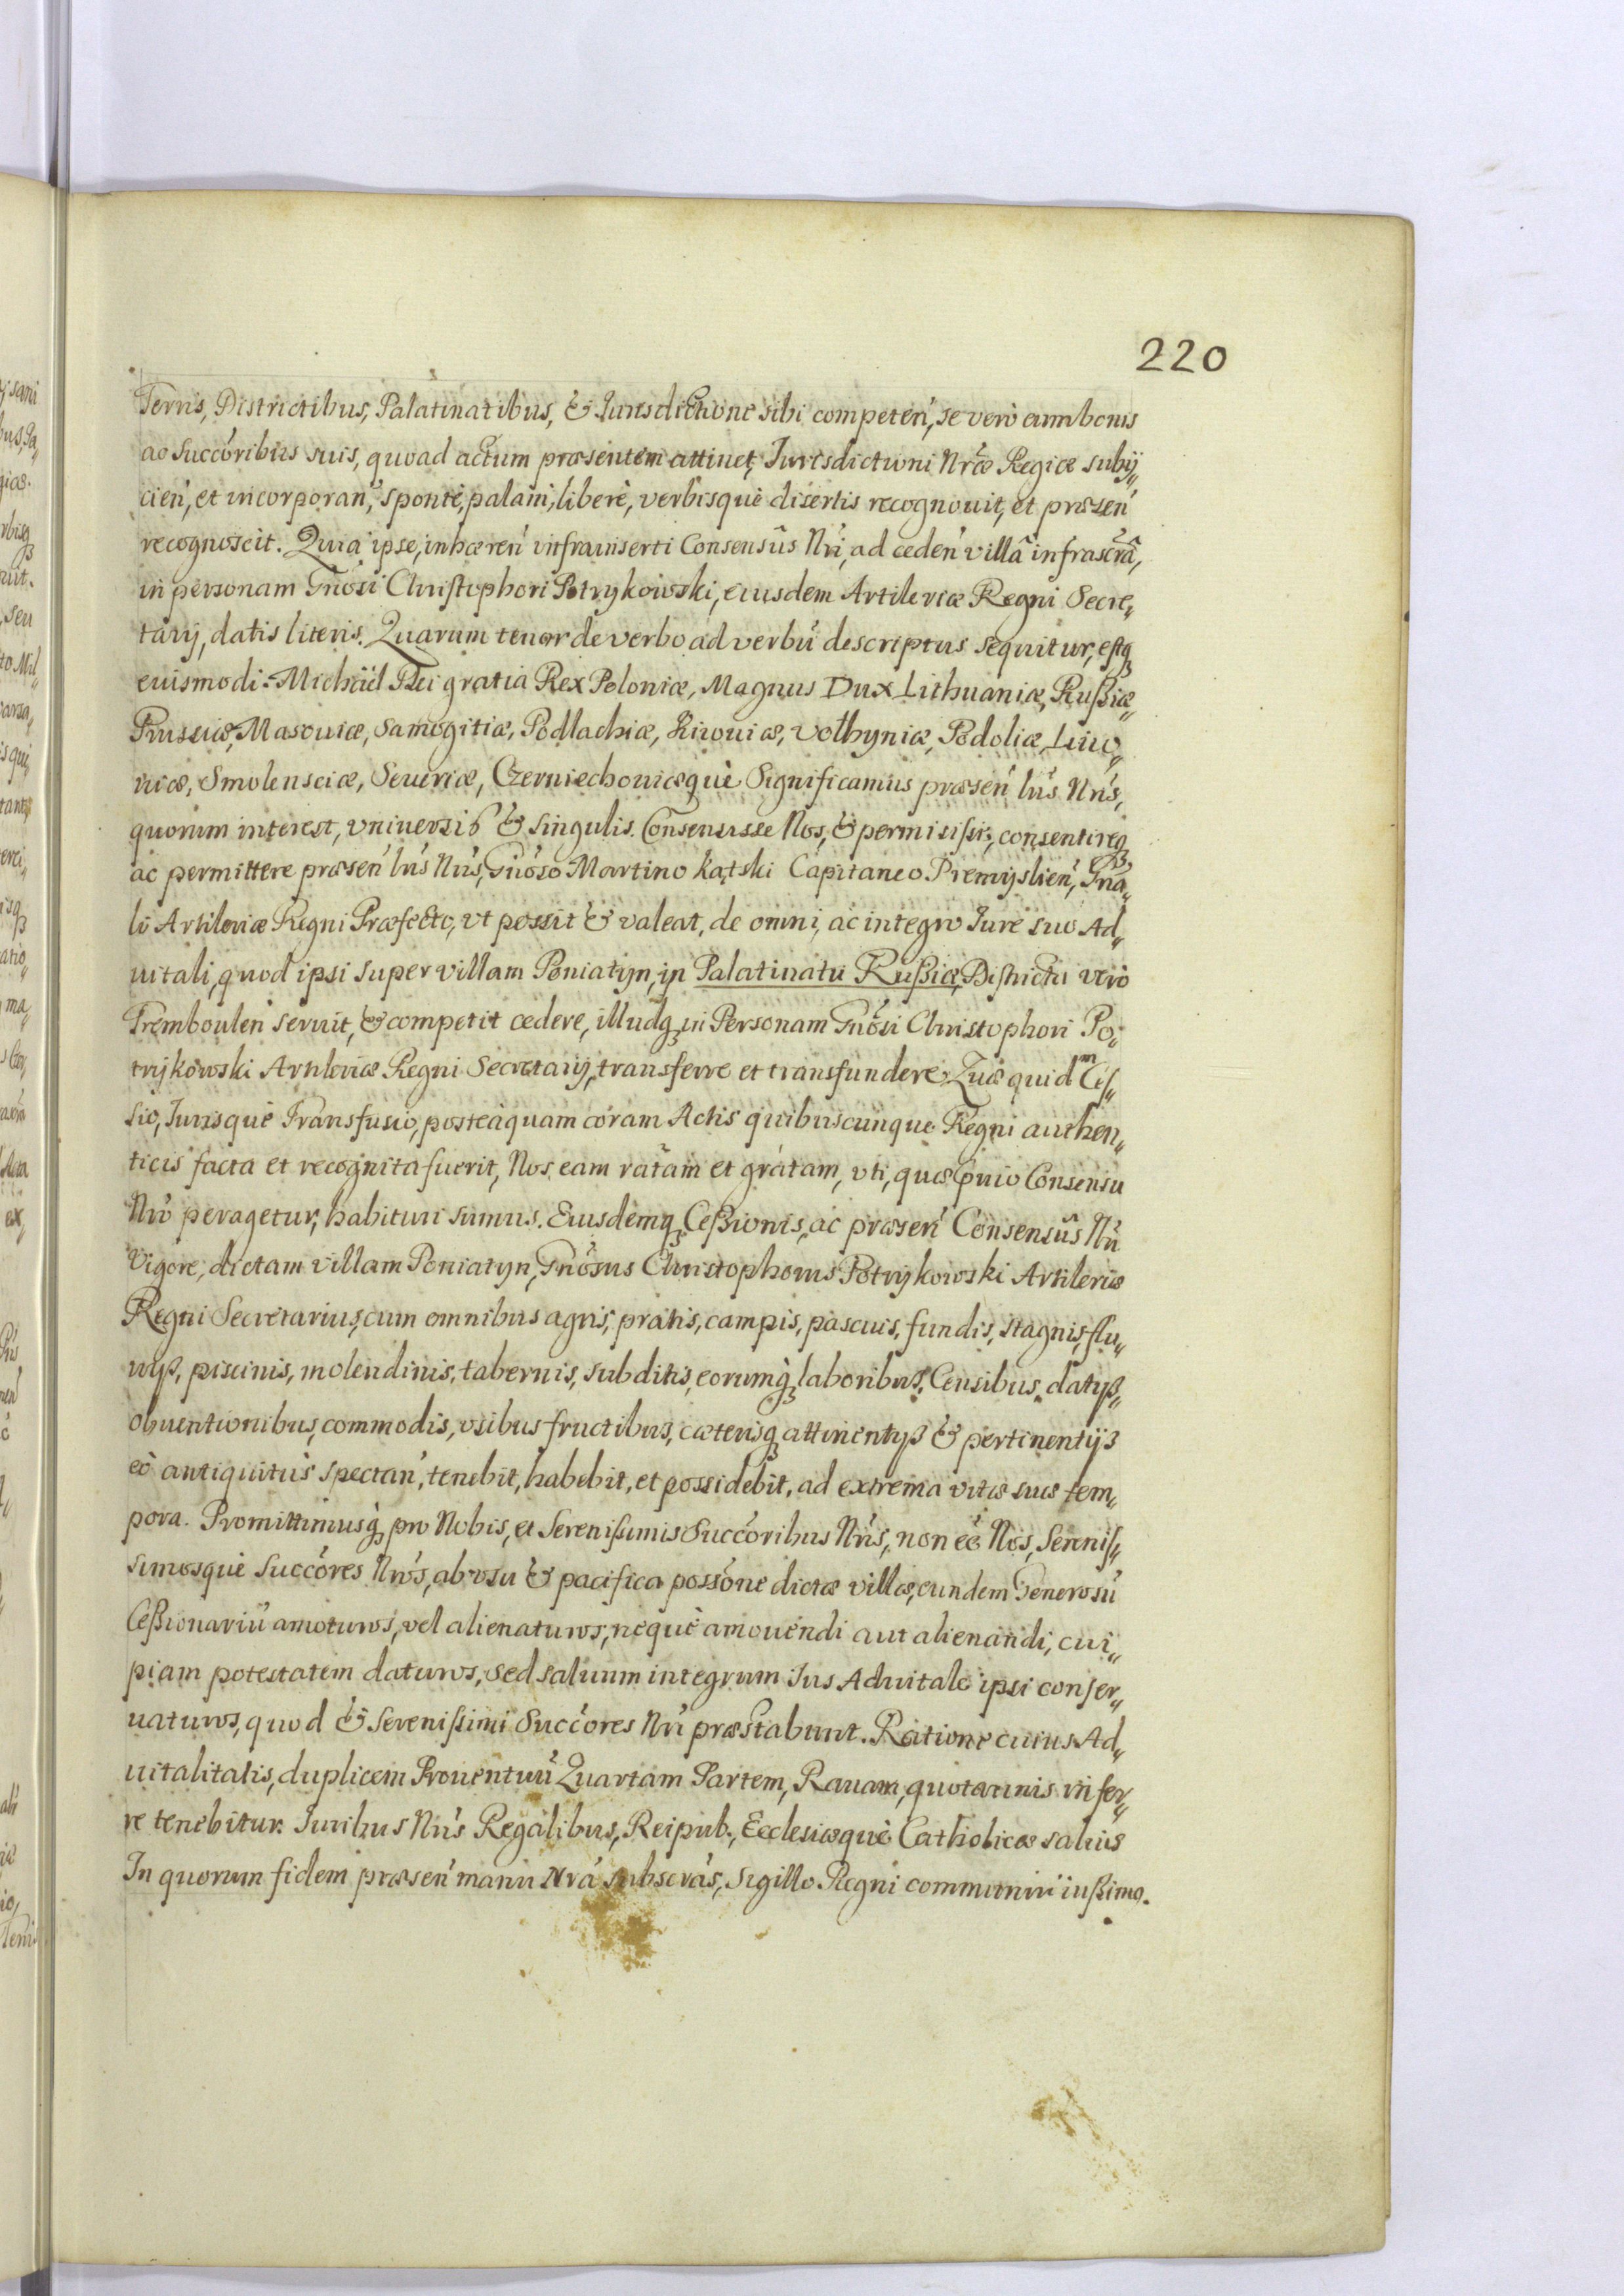 220
Terris, Districtibus, Palatinatibus, & Iurisdictione sibi competeń, se verò cum bonis
ac Succoribus suis, quoad actum præsentem attinet, Iurisdictioni Nrǽ Regiæ subij„
cień, et incorporań, spontè, palam, liberè, verbisquè disertis recognouit, et præseń
recognoscit. Quia ipse, inhæreń infrainserti Consensûs Nri, ad cedeń villâ infrascrâ,
in personam Gnosi Christophori Potrykowski, eiusdem Artileriæ Regni Secre„
tarij, datis literis. Quarum tenor de verbo ad verbũ descriptus sequitur, estq
euismodi. Michäel Dei gratia Rex Poloniæ, Magnus Dux Lithuaniæ, Rußiæ„
Prussiæ, Masouiæ, Samogitiæ, Podlachiæ, Kiiouiæ, Volhyniæ, Podoliæ, Liuo„
niæ, Smolensciæ, Seueriæ, Czerniechouiæquè Significamus præseń lrís Nrís,
quorum interest, vniuersis & singulis. Consensisse Nos, & permisisse, consentireq
ac permittere præseń lrís Nrís, Gnoso Martino Kątski Capitaneo Premyslień, Gna„
li Artileriæ Regni Præfecto, vt possit & valeat, de omni, ac integro Iure suo Ad„
uitali, quod ipsi super villam Poniatyn, in Palatinatu Rußiæ, Districtu verò
Trembouleń seruit, & competit cedere, illudq in Personam Gnosi Christophori Po„
trykowski Artileriæ Regni Secretarij, transferre et transfundere. Quæ quidm Ces„
sio, Iurisquè Transfusio, posteaquam coram Actis quibuscunque Regni authen„
ticis facta et recognita fuerit, Nos eam ratam et gratam, vti, quæ pṕuio Consensu
Nro peragetur, habituri sumus. Eiusdemq Ceßionis, ac præseń Consensûs Nri
Vigore, dictam villam Poniatyn, Gnosus Christophorus Potrykowski Artileriæ
Regni Secretarius, cum omnibus agris, pratis, campis, pascuis, fundis, stagnis, flu„
uijs, piscinis, molendinis, tabernis, subditis, eorumq laboribus, Censibus, datijs,
obuentionibus, commodis, vsibus fructibus, cæterisq attinentijs & pertinentijs
eò antiquitùs spectań, tenebit, habebit, et possidebit, ad extrema vitæ suæ tem„
pora. Promittimusq pro Nobis, et Serenißimis Succoribus Nrís, non eé Nos, Serenis„
simosquè Succores Nros, ab vsu & pacifica possone dictæ villæ, eundem Generosũ
Ceßionariũ amoturos, vel alienaturos, nequè amouendi aut alienandi, cui„
piam potestatem daturos, sed saluum integrum Ius Aduitale ipsi conser„
uaturos, quod & Serenißimi Succores Nri præstabunt. Ratione cuius Ad„
uitalitatis, duplicem Prouentuũ Quartam Partem, Rauam, quotannis infer„
re tenebitur. Iuribus Nrís Regalibus, Reipub., Ecclesiæquè Catholicæ saluis
In quorum fidem præseń manu Nrá subscrás, Sigillo Regni communiri iußimo.